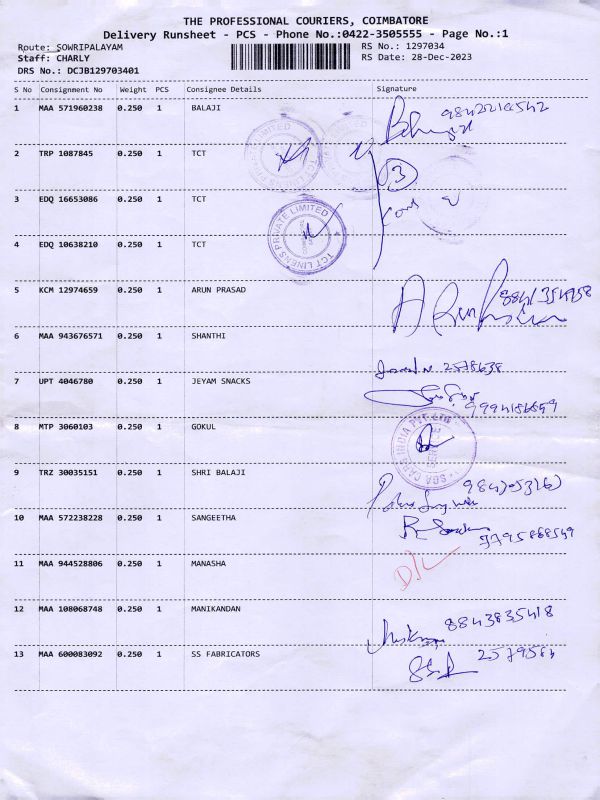 THE PROFESSIONAL COURIERS, COIMBATORE
Delivery Runsheet - PCS - Phone No.:0422-3505555 - Page No.:1
Route: SOWRIPALAYAM RS No.: 1297034
Staff: CHARLY RS Date: 28-Dec-2023
DRS No.: DCJB129703401
S No Consignment No Weight PCS Consignee Details Signature
1 MAA 571960238 0.250 1 BALAJI
2 TRP 1087845 0.250 1 TCT
3
3 EDQ 16653086 0.250 1 TCT
TCT LINENS PRIVATE LIMITED
4 EDQ 10638210 0.250 1 TCT
5 KCM 12974659 0.250 1 ARUN PRASAD
6 MAA 943676571 0.250 1 SHANTHI
2578638
7 UPT 4046780 0.250 1 JEYAM SNACKS
8 MTP 3060103 0.250 1 GOKUL
9 TRZ 30035151 0.250 1 SHRI BALAJI
10 MAA 572238228 0.250 1 SANGEETHA
11 MAA 944528806 0.250 1 MANASHA
D/L
12 MAA 108068748 0.250 1 MANIKANDAN
8843835418
13 MAA 600083092 0.250 1 SS FABRICATORS